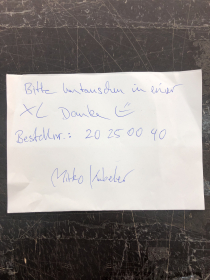 Bitte umtauschen in einer
XL Danke
Bestellnr.: 20 25 00 90
Mirko